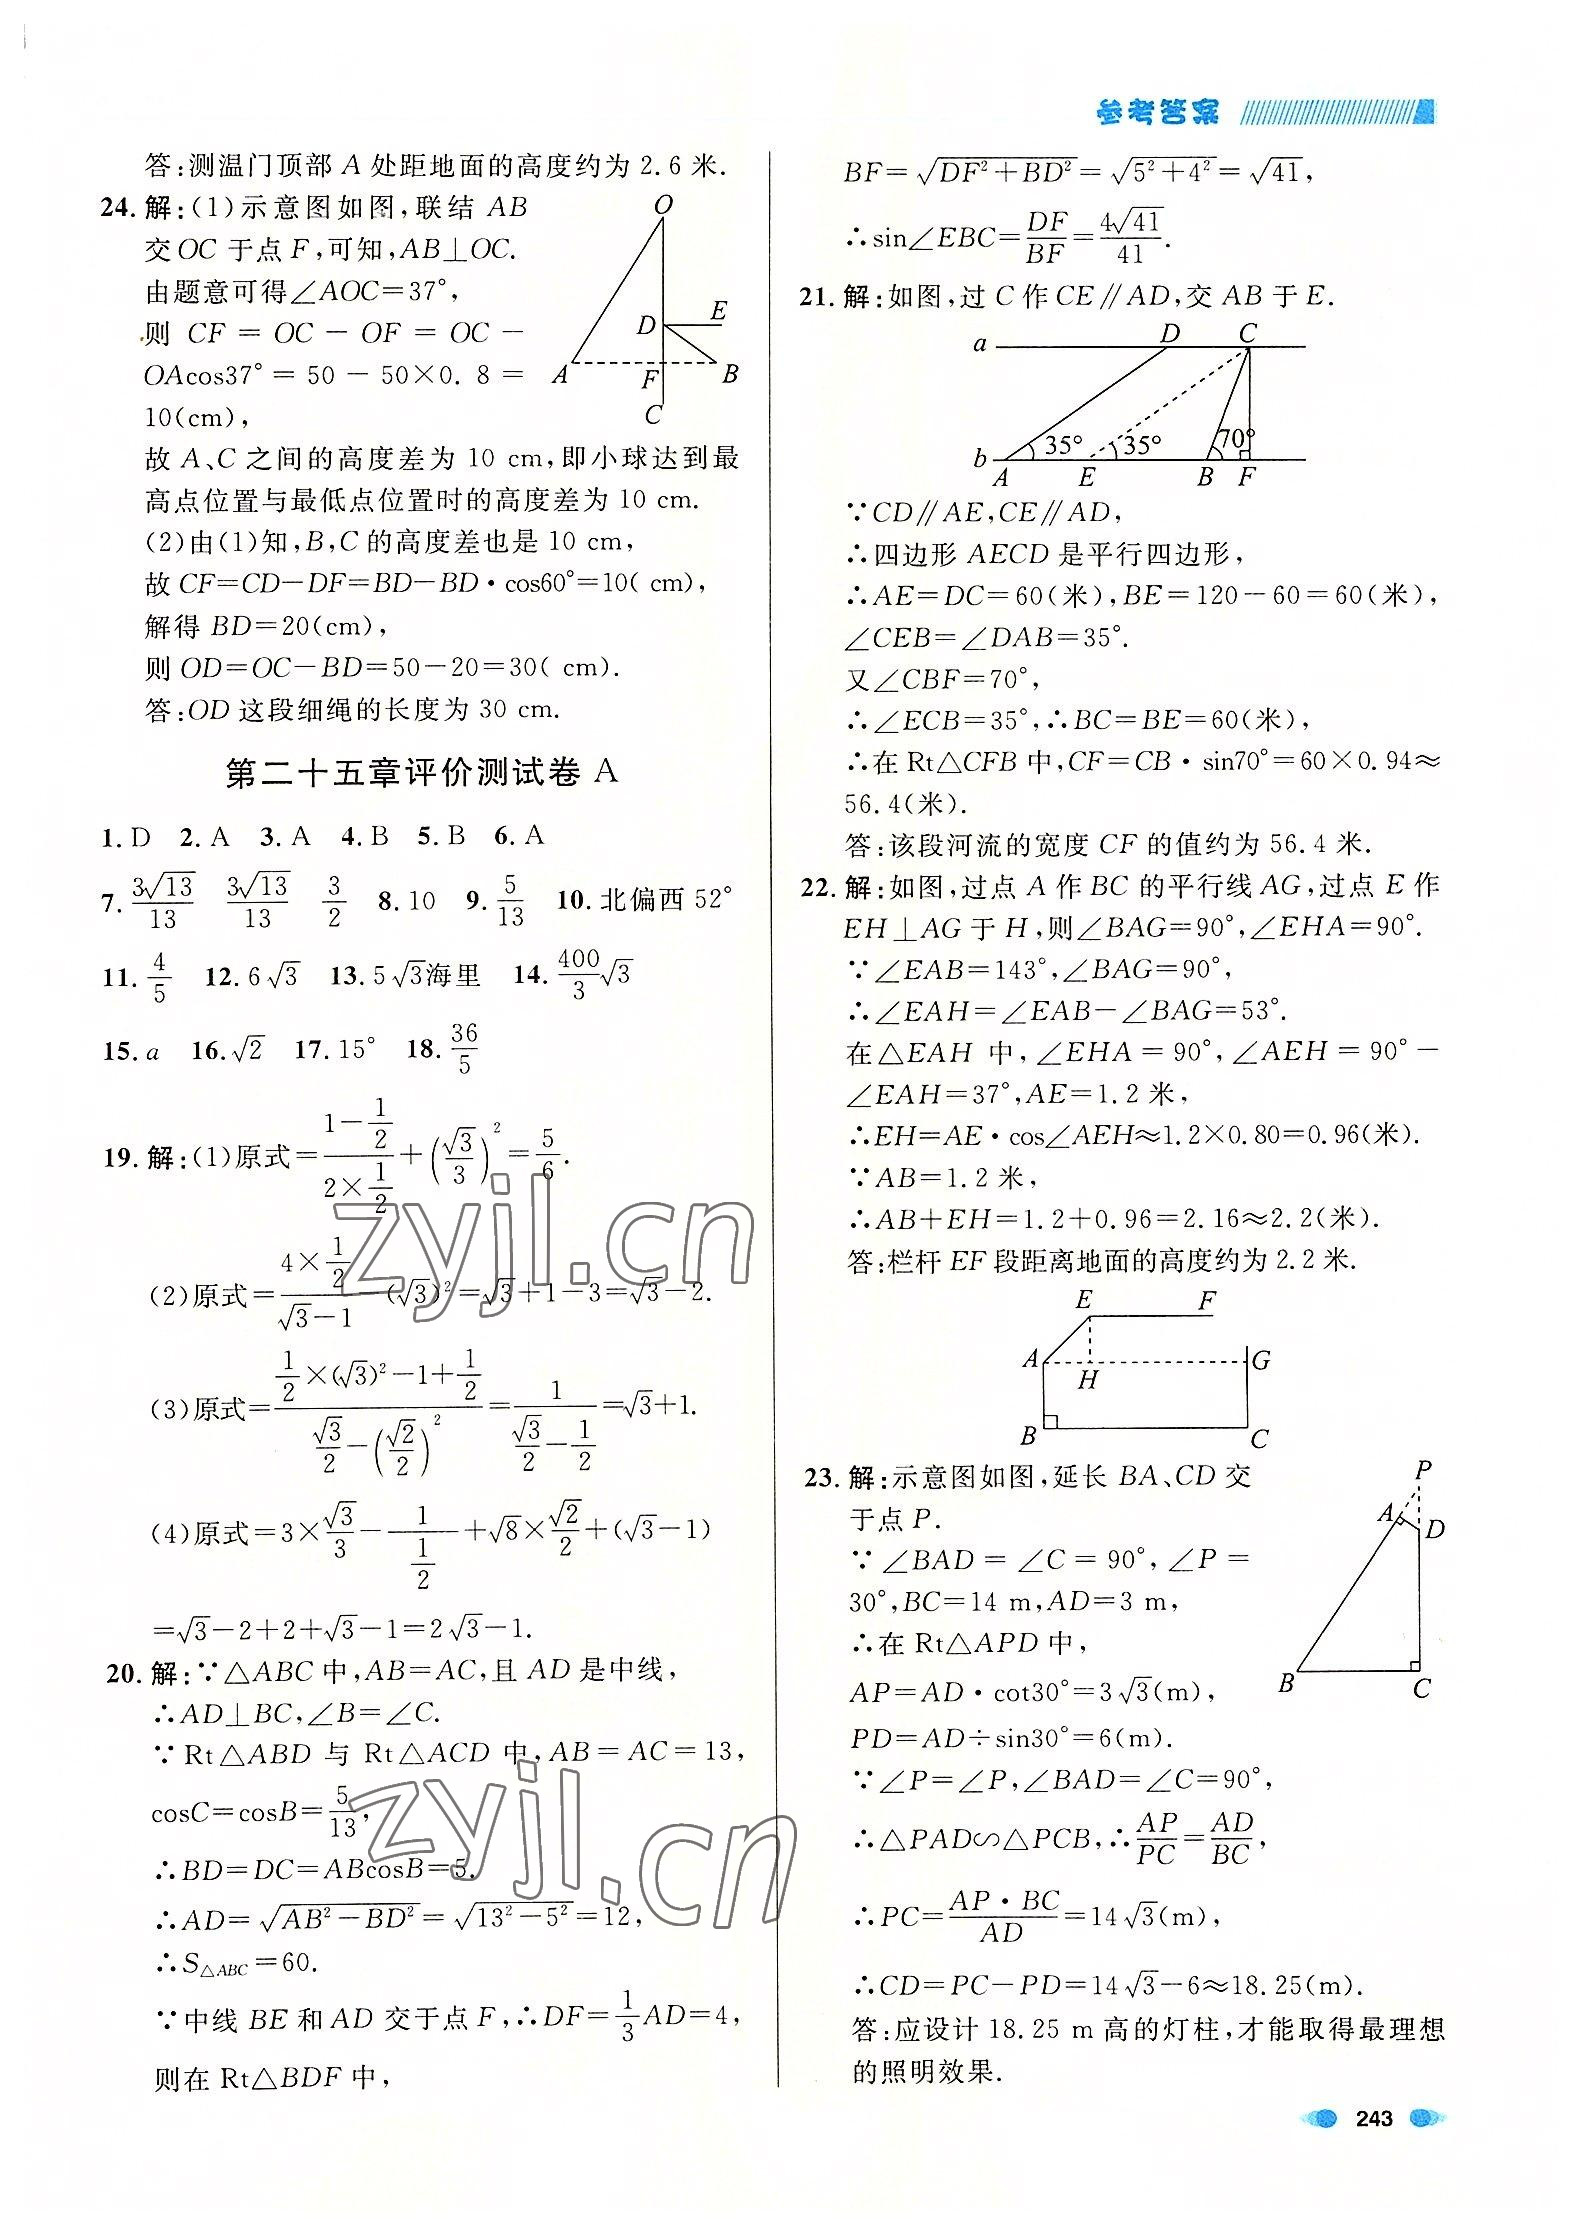 参考答案
答:测温门顶部 A 处距地面的高度约为 2.6 米.
24. 解:(1)示意图如图,联结 AB
交 OC 于点 F,可知,AB⊥OC.
由题意可得∠AOC=37°,
则 CF = OC - OF = OC -
OAcos37° = 50 - 50×0.8 =
10(cm),
故 A、C 之间的高度差为 10 cm,即小球达到最
高点位置与最低点位置时的高度差为 10 cm.
(2)由(1)知,B,C 的高度差也是 10 cm,
故 CF=CD-DF=BD-BD·cos60°=10( cm),
解得 BD=20(cm),
则 OD=OC-BD=50-20=30( cm).
答:OD 这段细绳的长度为 30 cm.
O
D
E
A
F
B
C
第二十五章评价测试卷 A
1. D 2. A 3. A 4. B 5. B 6. A
7. 3√13/13 3√13/13 3/2 8. 10 9. 5/13 10. 北偏西 52°
11. 4/5 12. 6√3 13. 5√3海里 14. 400/3√3
15. a 16. √2 17. 15° 18. 36/5
19. 解:(1)原式=(1-1/2)/(2×1/2)+(√3/3)²=5/6.
(2)原式=(4×1/2)/(√3-1)-(√3)²=√3+1-3=√3-2.
(3)原式=(1/2×(√3)²-1+1/2)/(√3/2-(√2/2)²)=1/(√3/2-1/2)=√3+1.
(4)原式=3×√3/3-1/(1/2)+√8×√2/2+(√3-1)
=√3-2+2+√3-1=2√3-1.
20. 解:∵△ABC 中,AB=AC,且 AD 是中线,
∴AD⊥BC,∠B=∠C.
∵Rt△ABD 与 Rt△ACD 中,AB=AC=13,
cosC=cosB=5/13,
∴BD=DC=ABcosB=5.
∴AD=√(AB²-BD²)=√(13²-5²)=12,
∴S△ABC=60.
∵中线 BE 和 AD 交于点 F,∴DF=1/3AD=4,
则在 Rt△BDF 中,
BF=√(DF²+BD²)=√(5²+4²)=√41,
∴sin∠EBC=DF/BF=4√41/41.
21. 解:如图,过 C 作 CE∥AD,交 AB 于 E.
D
C
a
35°
35°
70°
b
A
E
B
F
∵CD∥AE,CE∥AD,
∴四边形 AECD 是平行四边形,
∴AE=DC=60(米),BE=120-60=60(米),
∠CEB=∠DAB=35°.
又∠CBF=70°,
∴∠ECB=35°,∴BC=BE=60(米),
∴在 Rt△CFB 中,CF=CB·sin70°=60×0.94≈
56.4(米).
答:该段河流的宽度 CF 的值约为 56.4 米.
22. 解:如图,过点 A 作 BC 的平行线 AG,过点 E 作
EH⊥AG 于 H,则∠BAG=90°,∠EHA=90°.
∵∠EAB=143°,∠BAG=90°,
∴∠EAH=∠EAB-∠BAG=53°.
在△EAH 中,∠EHA=90°,∠AEH=90°-
∠EAH=37°,AE=1.2 米,
∴EH=AE·cos∠AEH≈1.2×0.80=0.96(米).
∵AB=1.2 米,
∴AB+EH=1.2+0.96=2.16≈2.2(米).
答:栏杆 EF 段距离地面的高度约为 2.2 米.
E
F
A
H
G
B
C
23. 解:示意图如图,延长 BA、CD 交
于点 P.
∵∠BAD=∠C=90°,∠P=
30°,BC=14 m,AD=3 m,
∴在 Rt△APD 中,
AP=AD·cot30°=3√3(m),
PD=AD÷sin30°=6(m).
∵∠P=∠P,∠BAD=∠C=90°,
∴△PAD∽△PCB,∴AP/PC=AD/BC,
∴PC=AP·BC/AD=14√3(m),
∴CD=PC-PD=14√3-6≈18.25(m).
答:应设计 18.25 m 高的灯柱,才能取得最理想
的照明效果.
P
A
D
B
C
zyjl.cn
zyjl.cn
243